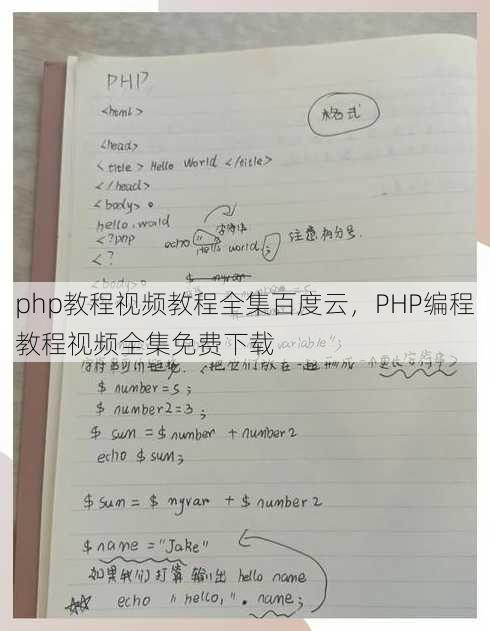 PHP
<html>
格式
<head>
<title> Hello World </title>
</head>
<body>
hello.world
字符串
<?php echo "Hello world"; 注意有分号.
<?
<body>
php教程视频教程全集百度云，PHP编程
教程视频全集免费下载
variable"
(把它们放在一起形成一个更长字符串)
$ number=5;
$ number2=3;
$ sum = $ number + number2
echo $ sum;
$ sum = $ myvar + $ number2
$ name = "Jake"
如果我们打算输出 hello name
echo "hello,". name;